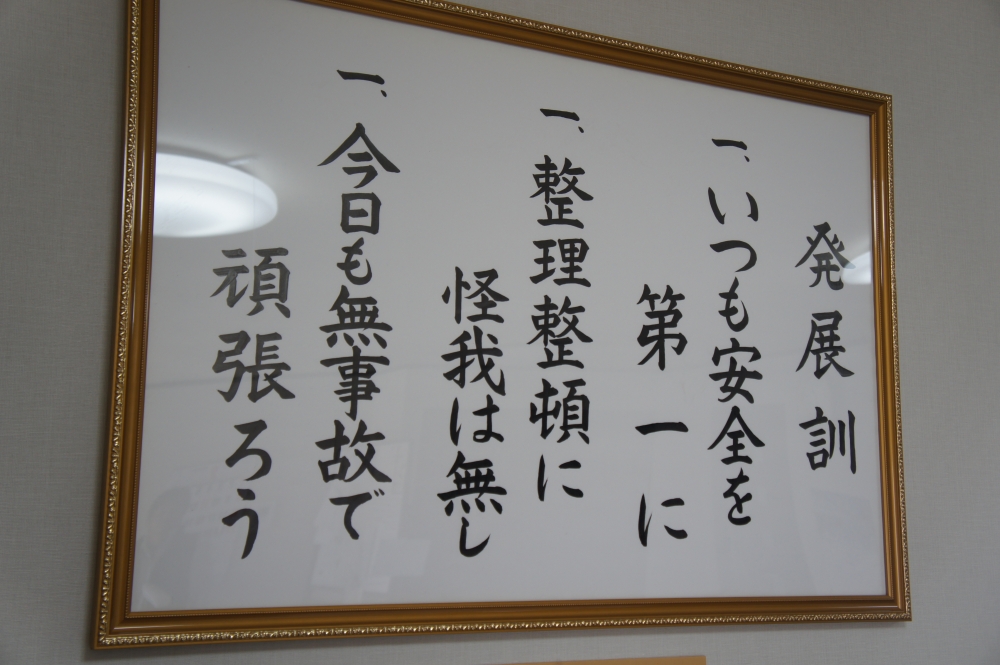 発展訓
一、いつも安全を
第一に
一、整理整頓に
怪我は無し
一、今日も無事故で
頑張ろう